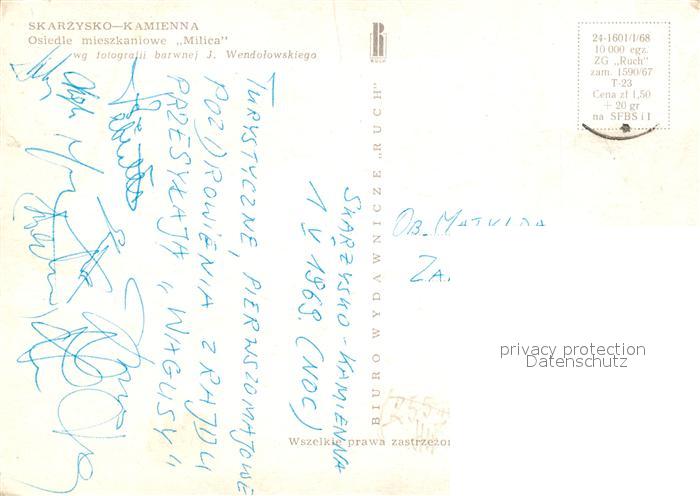 SKARŻYSKO—KAMIENNA
Osiedle mieszkaniowe „Milica"
wg fotografii barwnej J. Wendołowskiego
RUCH
24-1601/I/68
10 000 egz.
ZG „Ruch"
zam. 1590/67
T-23
Cena zł 1,50
+ 20 gr
na SFBS i I
SKARŻYSKO-KAMIENNA
1 V 1968. (NOC)
TURYSTYCZNE, PIERWSZOMAJOWE
POZDROWIENIA Z RAJDU
PRZESYŁAJĄ „WAGUSY"
BIURO WYDAWNICZE „RUCH"
OB.
ZA.
privacy protection
Datenschutz
Wszelkie prawa zastrzeżon